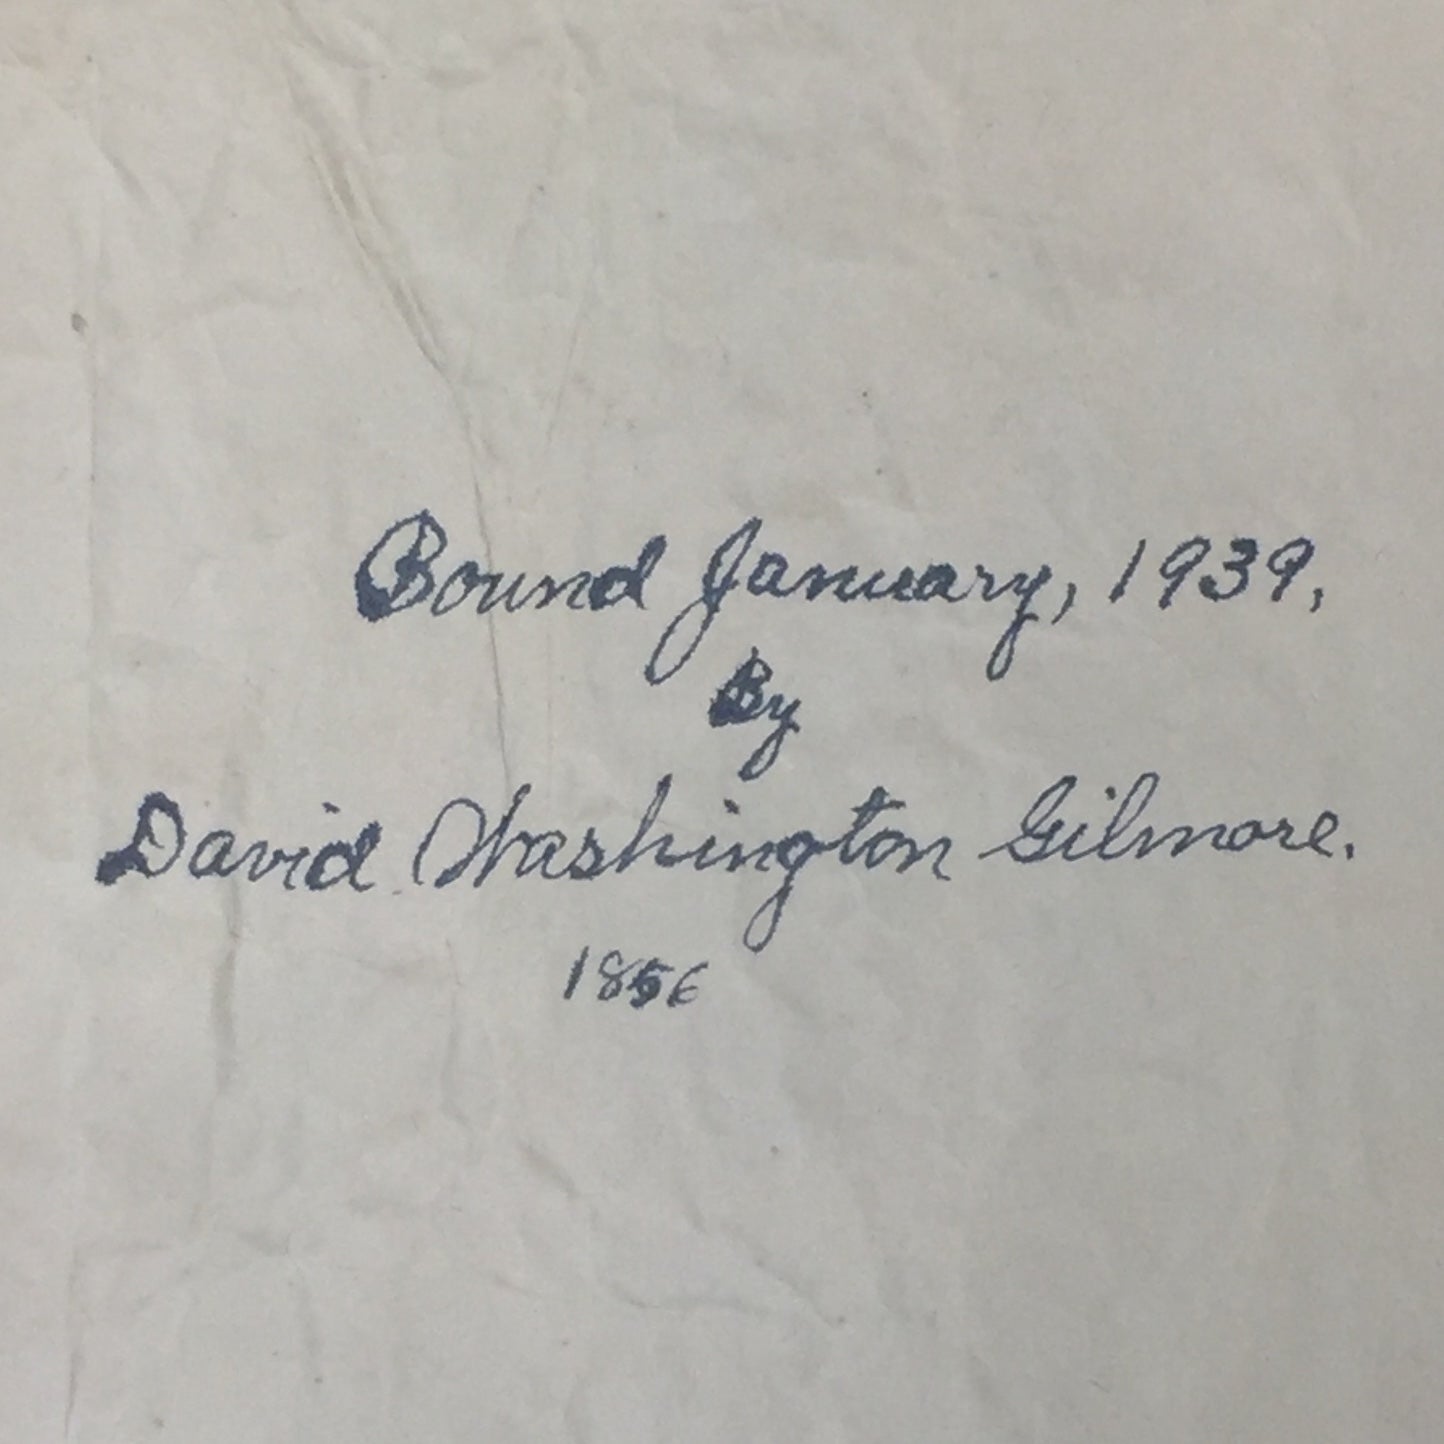 Bound January, 1939,
By
David Washington Gilmore.
1856